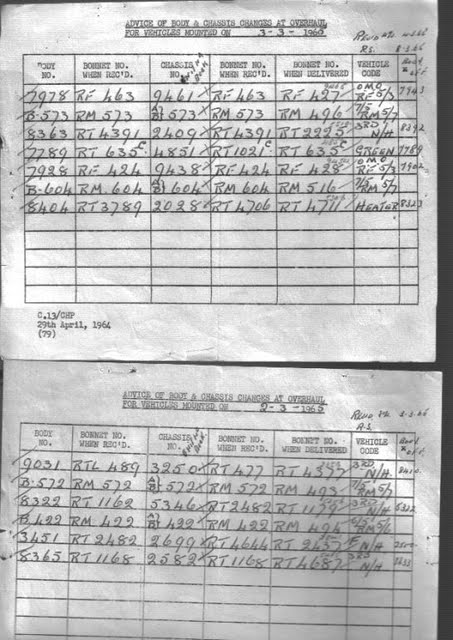 ADVICE OF BODY & CHASSIS CHANGES AT OVERHAUL
FOR VEHICLES MOUNTED ON 3-3-1966
BODY NO. BONNET NO. WHEN REC'D. CHASSIS NO. BONNET NO. BONNET NO. WHEN DELIVERED VEHICLE CODE
7978 RF 463 9461 RF 463 RF 427 RF 5/3 7943
B-573 RM 573 573 RM 573 RM 496 7/5 RM 5/7
8363 RT 4391 2409 RT 4391 RT 2225 3RD N/H 8392
7789 RT 635 4851 RT 1021 RT 635 GREEN 7789
7928 RF 424 9438 RF 424 RF 428 RF 5/3 7902
B-604 RM 604 604 RM 604 RM 516 7/5 RM 5/7
8404 RT 3789 2028 RT 4706 RT 4711 HEATER 8323
C.13/CHP
29th April, 1964
(79)
ADVICE OF BODY & CHASSIS CHANGES AT OVERHAUL
FOR VEHICLES MOUNTED ON 2-3-1966
BODY NO. BONNET NO. WHEN REC'D. CHASSIS NO. BONNET NO. BONNET NO. WHEN DELIVERED VEHICLE CODE
9031 RTL 489 3250 RT 477 RT 4377 3RD N/H
B-572 RM 572 572 RM 572 RM 493 7/5 RM 5/7
8322 RT 1162 5346 RT 2482 RT 1179 3RD N/H
B-422 RM 422 B-422 RM 422 RM 494
3451 RT 2482 2699 RT 4644 RT 2437 N/H
8365 RT 1168 2582 RT 1168 RT 4687 3RD N/H